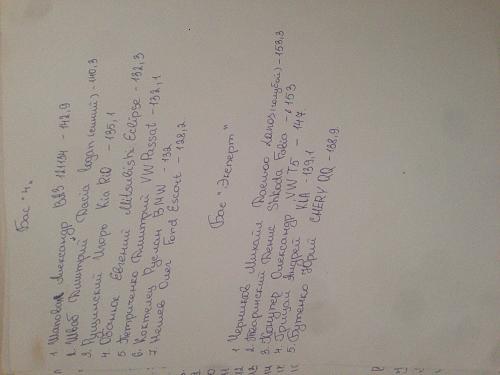 Бас "4"
1 Шаповал Александр ВАЗ 21134 - 142,9
2. Швед Дмитрий Dacia Logan (синий) - 140,3
3. Пушинский Игорь Kia Rio - 135,1
4. Обанюк Евгений Mitsubishi Eclipse - 132,3
5 Петриченко Дмитрий VW Passat - 132,1
6. Коктелец Руслан BMW - 132
7 Нешев Олег Ford Escort - 128,2
Бас "Эксперт"
1 Черников Михайл Daewoo Lanos (голубой) - 158,3
2. Тваринский Денис Shkoda Fabia - 153
3. Александр VW T5 - 147
4. Грицай Андрей KIA - 139,1
5. Бутенко Юрий CHERY QQ - 138,9